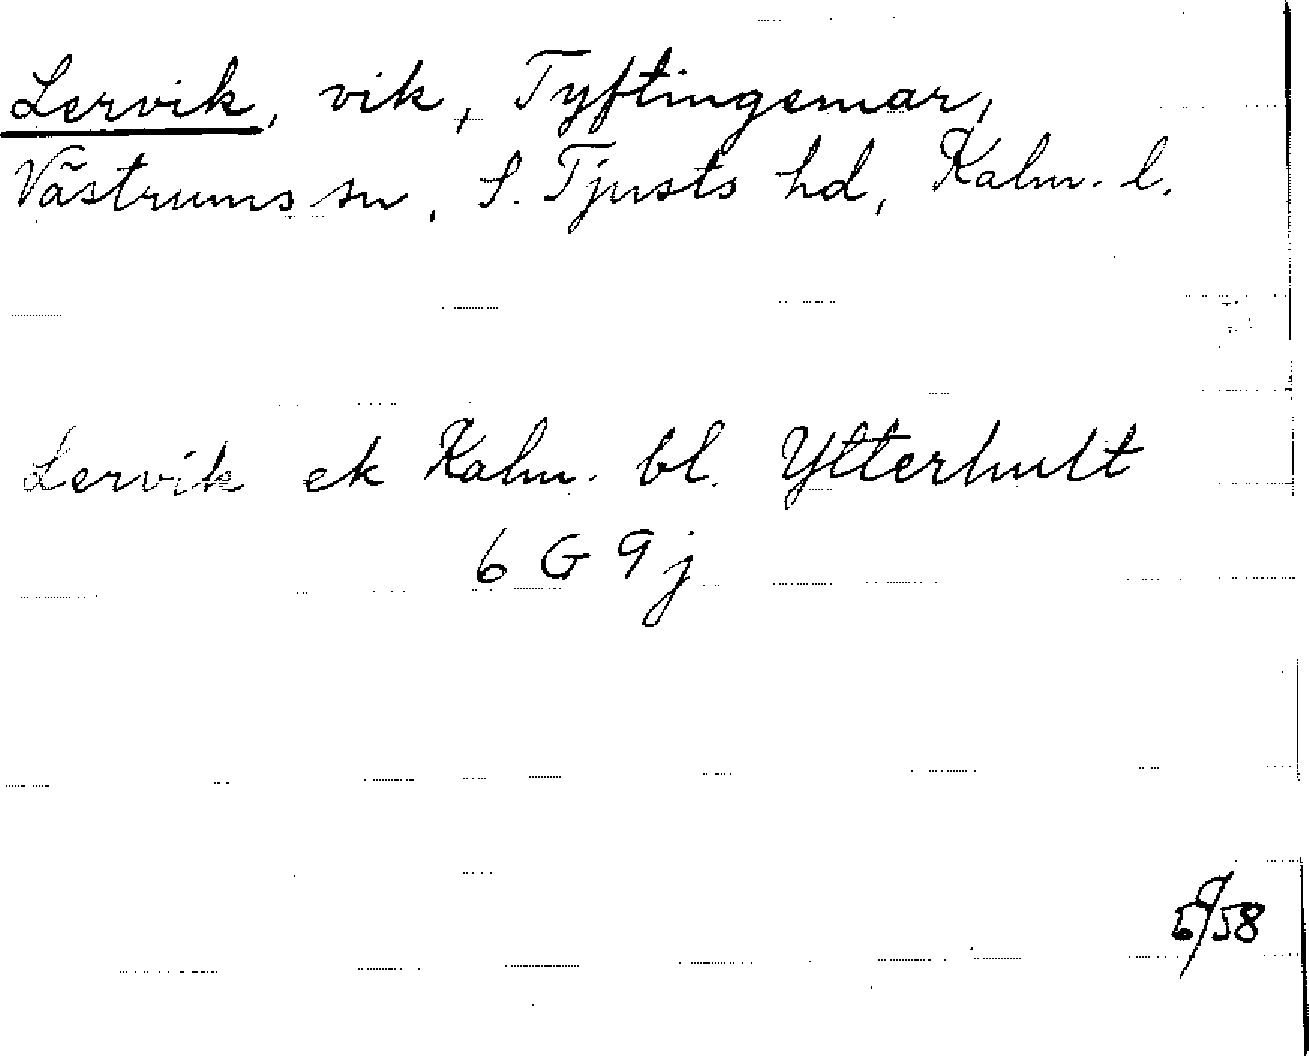 Lervik, vik, Tyftingemar,
Västrums sn, S. Tjusts hd, Kalm. l.
Lervik ek Kalm. bl. Ytterhult
6 G 9 j